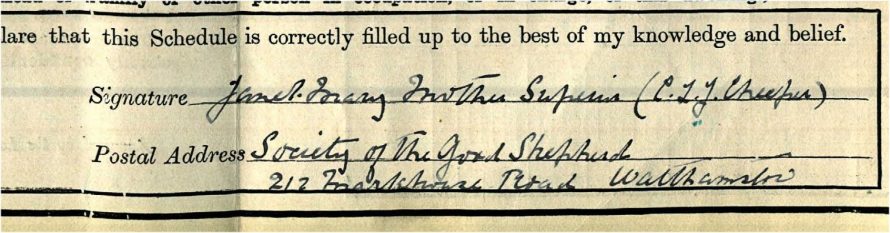 lare that this Schedule is correctly filled up to the best of my knowledge and belief.
Signature Janet Mary Mother Superior (C.L.J. Cheeper)
Postal Address Society of the Good Shepherd
212 Markhouse Road Walthamstow